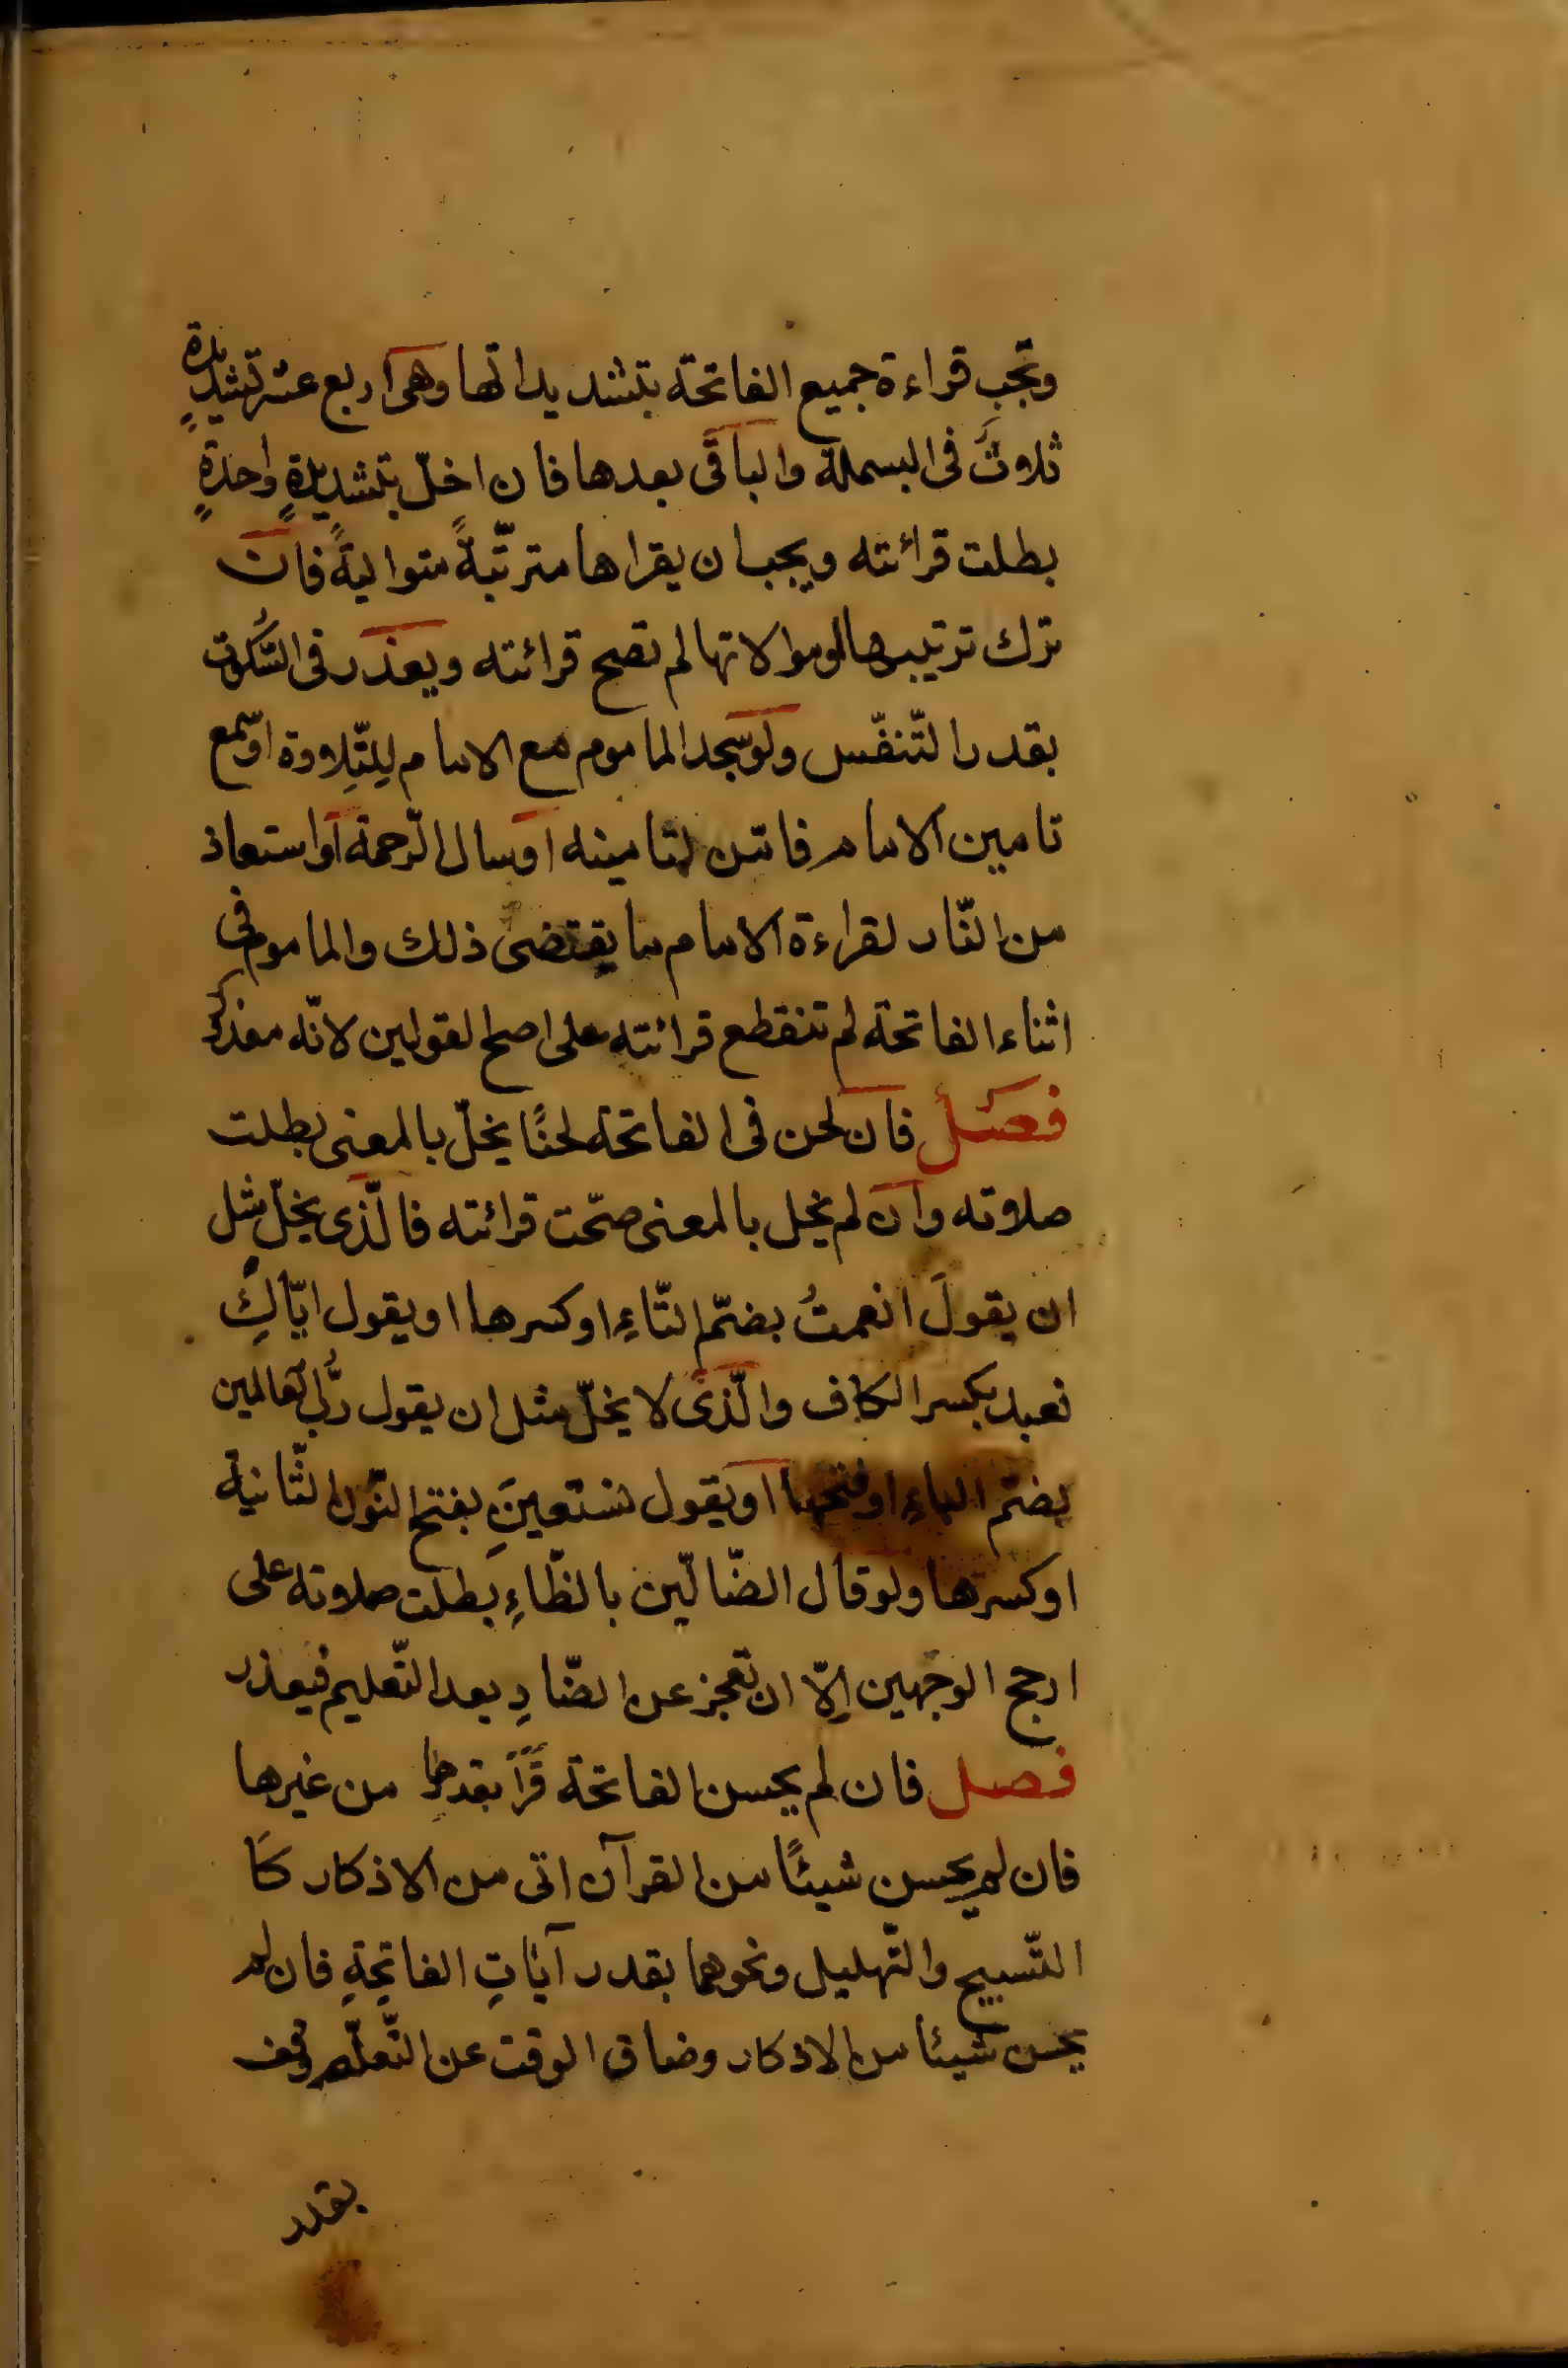 وتجب قراءة جميع الفاتحة بتشديداتها وهى اربع عشر تشديدةٍ
ثلاثٌ فى البسملة والباقى بعدها فان اخلّ بتشديدةٍ واحدةٍ
بطلت قرائته ويجب ان يقراها مترتّبةً متواليةً فان
ترك ترتيبها او موالاتها لم تصح قرائته ويعذر فى السُّكوت
بقدر التّنفّس ولو سجد الماموم مع الامام لِلتِّلاوة او سمع
تامين الامام فامّن لتامينه او سال الرّحمة او استعاذ
من النّار لقراءة الامام ما يقتضى ذلك والماموم فى
اثناء الفاتحة لم تنقطع قرائته على اصح القولين لانّه معذور
فصل فان لحن فى الفاتحة لحنًا يخلّ بالمعنى بطلت
صلاوته وان لم يخل بالمعنى صحّت قرائته فالّذى يخلّ مثل
ان يقولَ انعمتُ بضمّ التّاءِ او كسرها او يقول ايّاكِ
نعبد بكسر الكاف والّذى لا يخلّ مثل ان يقول ربُّ العالمين
بضم الباءِ او فتحها او يقول نستعينَِ بفتح النّون الثّانية
او كسرها ولو قال الضّالّين بالظّاءِ بطلت صلاوته على
ارجح الوجهين الّا ان تعجز عن الضّادِ بعد التّعليم فيعذر
فصل فان لم يحسن الفاتحة قَرَأَ بقدرها من غيرها
فان لم يحسن شيئًا من القرآن اتى من الاذكار كَا
التّسبيح والتّهليل ونحوهما بقدر آياتِ الفاتِحةِ فان لم
يحسن شيئا من الاذكار وضاق الوقت عن التّعلّم وقف
بقدر